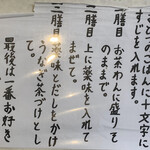 ごはんに十文字に
すじを入れます。
一膳目 お茶わんに盛り
のままで。
二膳目 上に薬味を入れて
まぜて。
三膳目 薬味とだしをかけ
うなぎ茶づけとし
て。
最後は一番お好き